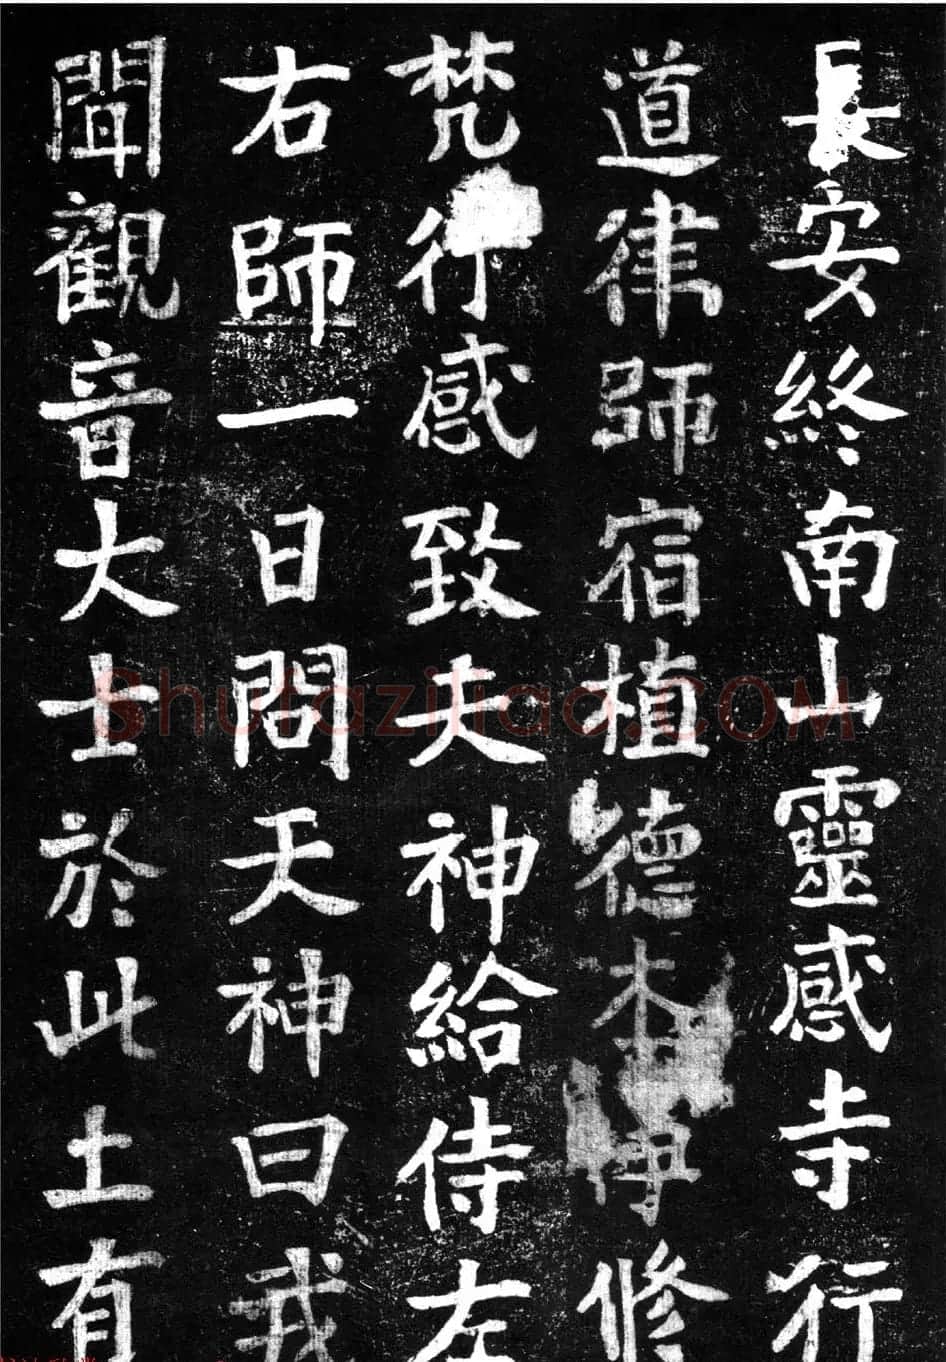 長安終南山靈感寺行
道律師宿植德本淨修
梵行感致天神給侍左
右師一日問天神曰我
聞觀音大士於此土有
Shufaziliao.COM